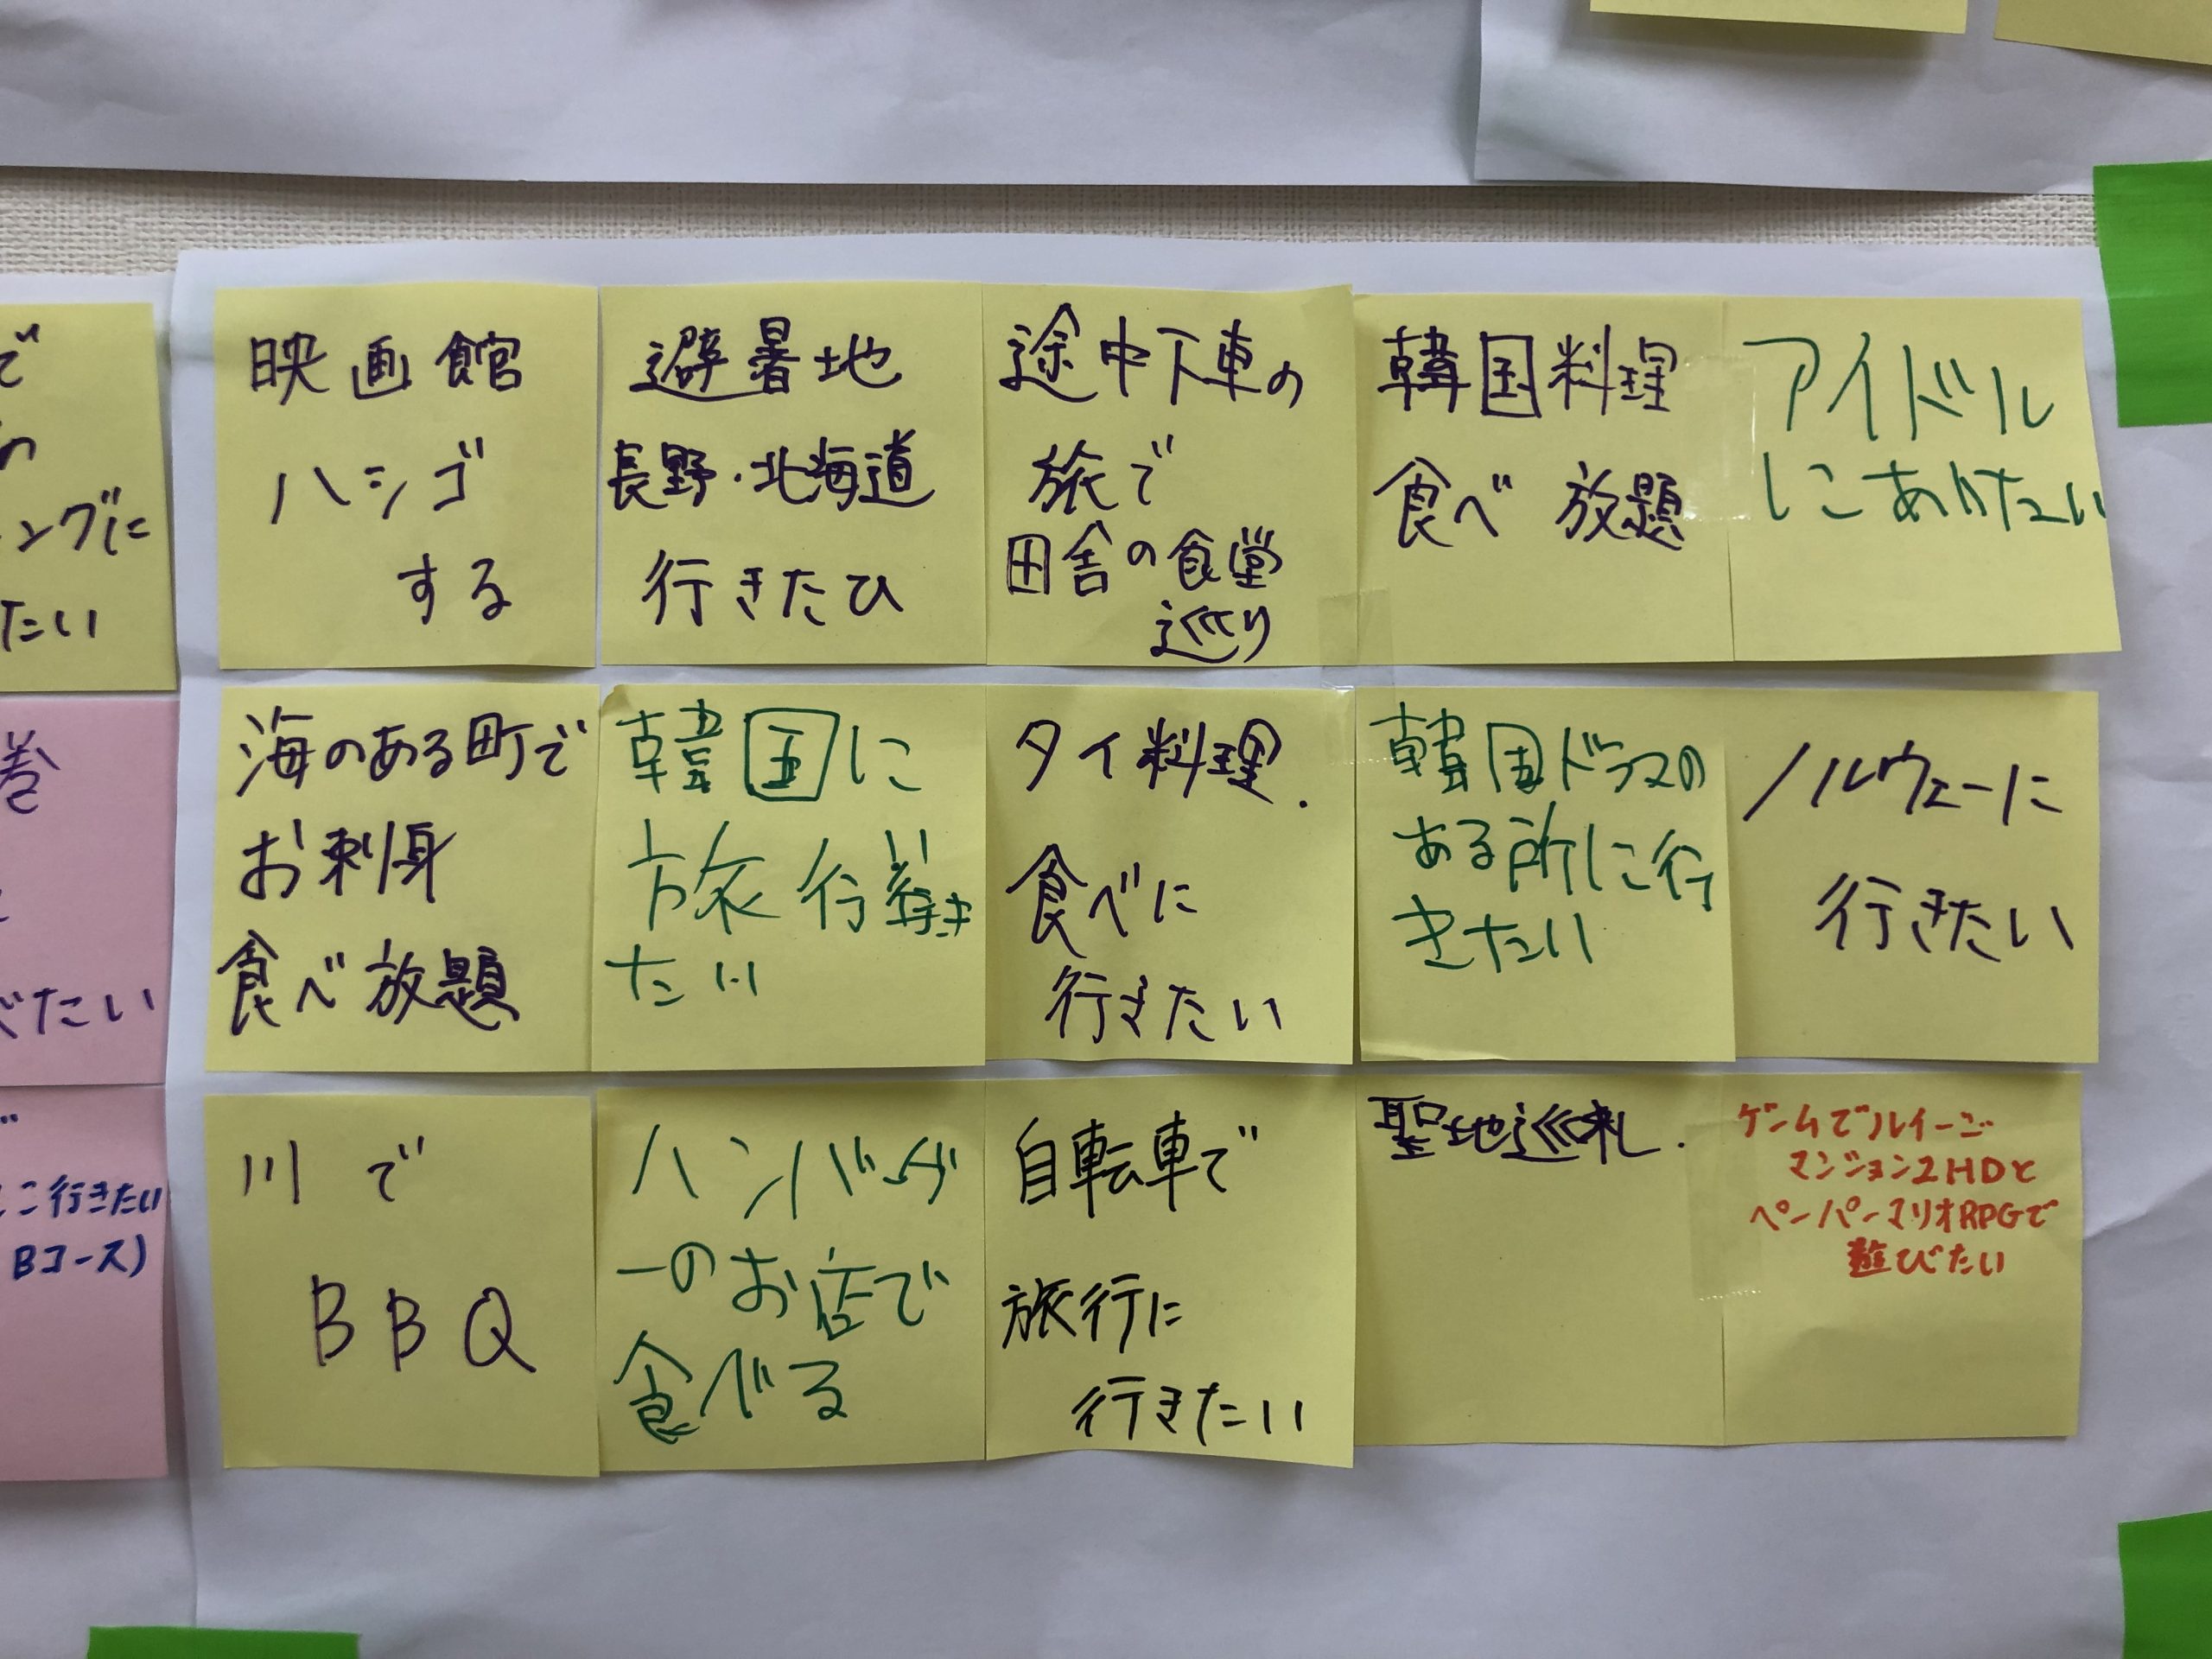 で
ングに
たい
巻
べたい
こ行きたい
Bコース)
映画館
ハシゴ
する
避暑地
長野・北海道
行きたひ
途中下車の
旅で
田舎の食堂
巡り
韓国料理
食べ放題
アイドル
にあいたい
海のある町で
お刺身
食べ放題
韓国に
旅行
たい
タイ料理.
食べに
行きたい
韓国ドラマの
ある所に行
きたい
ノルウェーに
行きたい
川で
BBQ
ハンバーガ
ーのお店で
食べる
自転車で
旅行に
行きたい
聖地巡礼.
ゲームでルイージ
マンション2HDと
ペーパーマリオRPGで
遊びたい